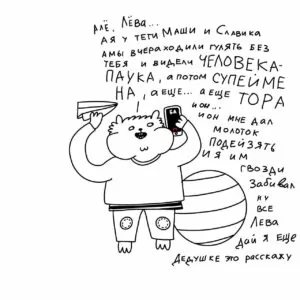 АЛЁ, ЛЁВА...
А Я У ТЕТИ МАШИ И СЛАВИКА
А МЫ ВЧЕРА ХОДИЛИ ГУЛЯТЬ БЕЗ
ТЕБЯ И ВИДЕЛИ ЧЕЛОВЕКА-
ПАУКА, А ПОТОМ СУПЕЙМЕ
НА, А ЕЩЕ... А ЕЩЕ ТОРА
И ОН...
И ОН МНЕ ДАЛ
МОЛОТОК
ПОДЕЙЗЯТЬ
И Я ИМ
ГВОЗДИ
ЗАБИВАЛ
НУ
ВСЕ
ЛЕВА
ДАЙ Я ЕЩЕ
ДЕДУШКЕ ЭТО РАССКАЖУ